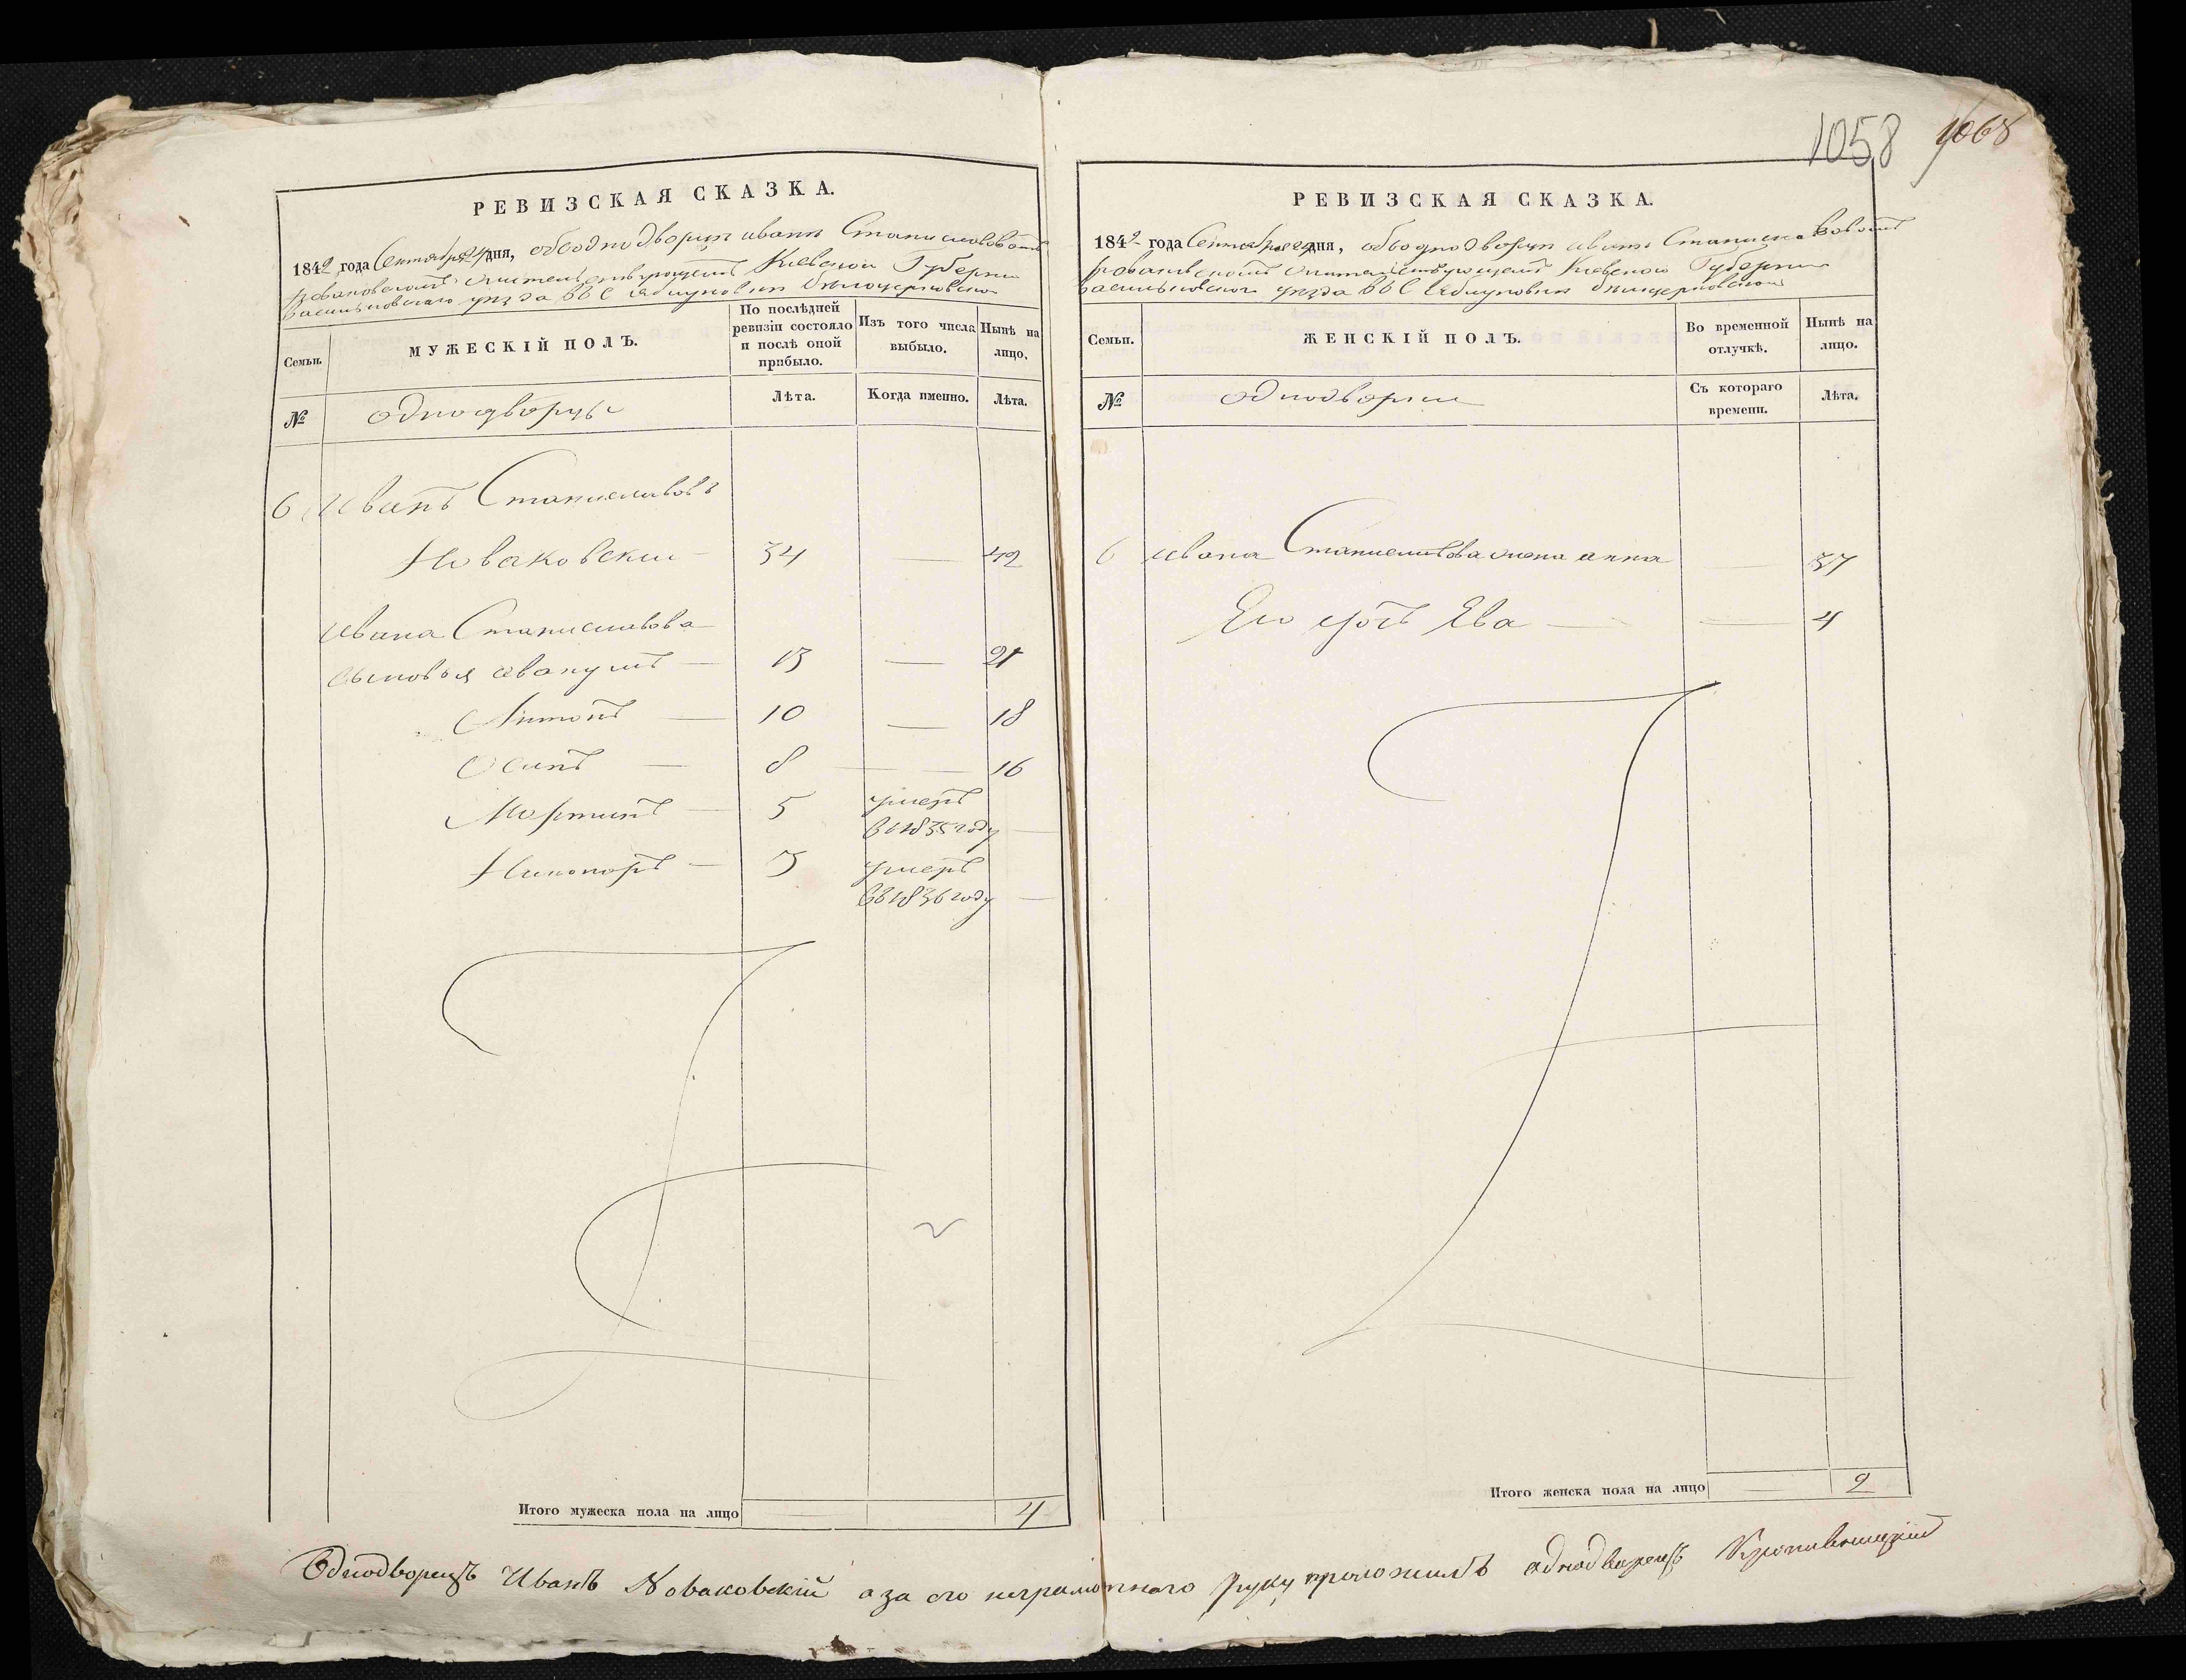 1058 1068
РЕВИЗСКАЯ СКАЗКА.
1842 года Сентября 24 дня, объ однодворце иване Станиславовомъ
Новаковскомъ жительствующемъ Киевской Губернии
васильковского уезда въ С Яблуновки белоцерковской
Семьи.
МУЖЕСКІЙ ПОЛЪ.
По послѣдней ревизіи состояло и послѣ оной прибыло.
Изъ того числа выбыло.
Нынѣ на лицо.
№
однодворцы
Лѣта.
Когда именно.
Лѣта.
6 Иванъ Станиславовъ
Новаковски 34 — 42
Ивана Станиславова
сыновья 13 — 21
Антонъ — 10 — 18
Осипъ — 8 — 16
Мортинъ — 5 умеръ
въ 1835 году —
Никопоръ — 3 умеръ
въ 1836 году —
Итого мужеска пола на лицо — — 4
РЕВИЗСКАЯ СКАЗКА.
1842 года Сентября 24 дня, объ однодворце иване Станиславовомъ
Новаковскомъ жительствующемъ Киевской Губернии
васильковского уезда въ С Яблуновки белоцерковской
Семьи.
ЖЕНСКІЙ ПОЛЪ.
Во временной отлучкѣ.
Нынѣ на лицо.
№
однодворки
Съ котораго времени.
Лѣта.
6 Ивана Станиславова жена анна — 37
Его дочь Ева — — 4
Итого женска пола на лицо — 2
Однодворецъ Иванъ Новаковскій а за его неграмотнаго руку приложилъ однодворецъ Кропивницкій